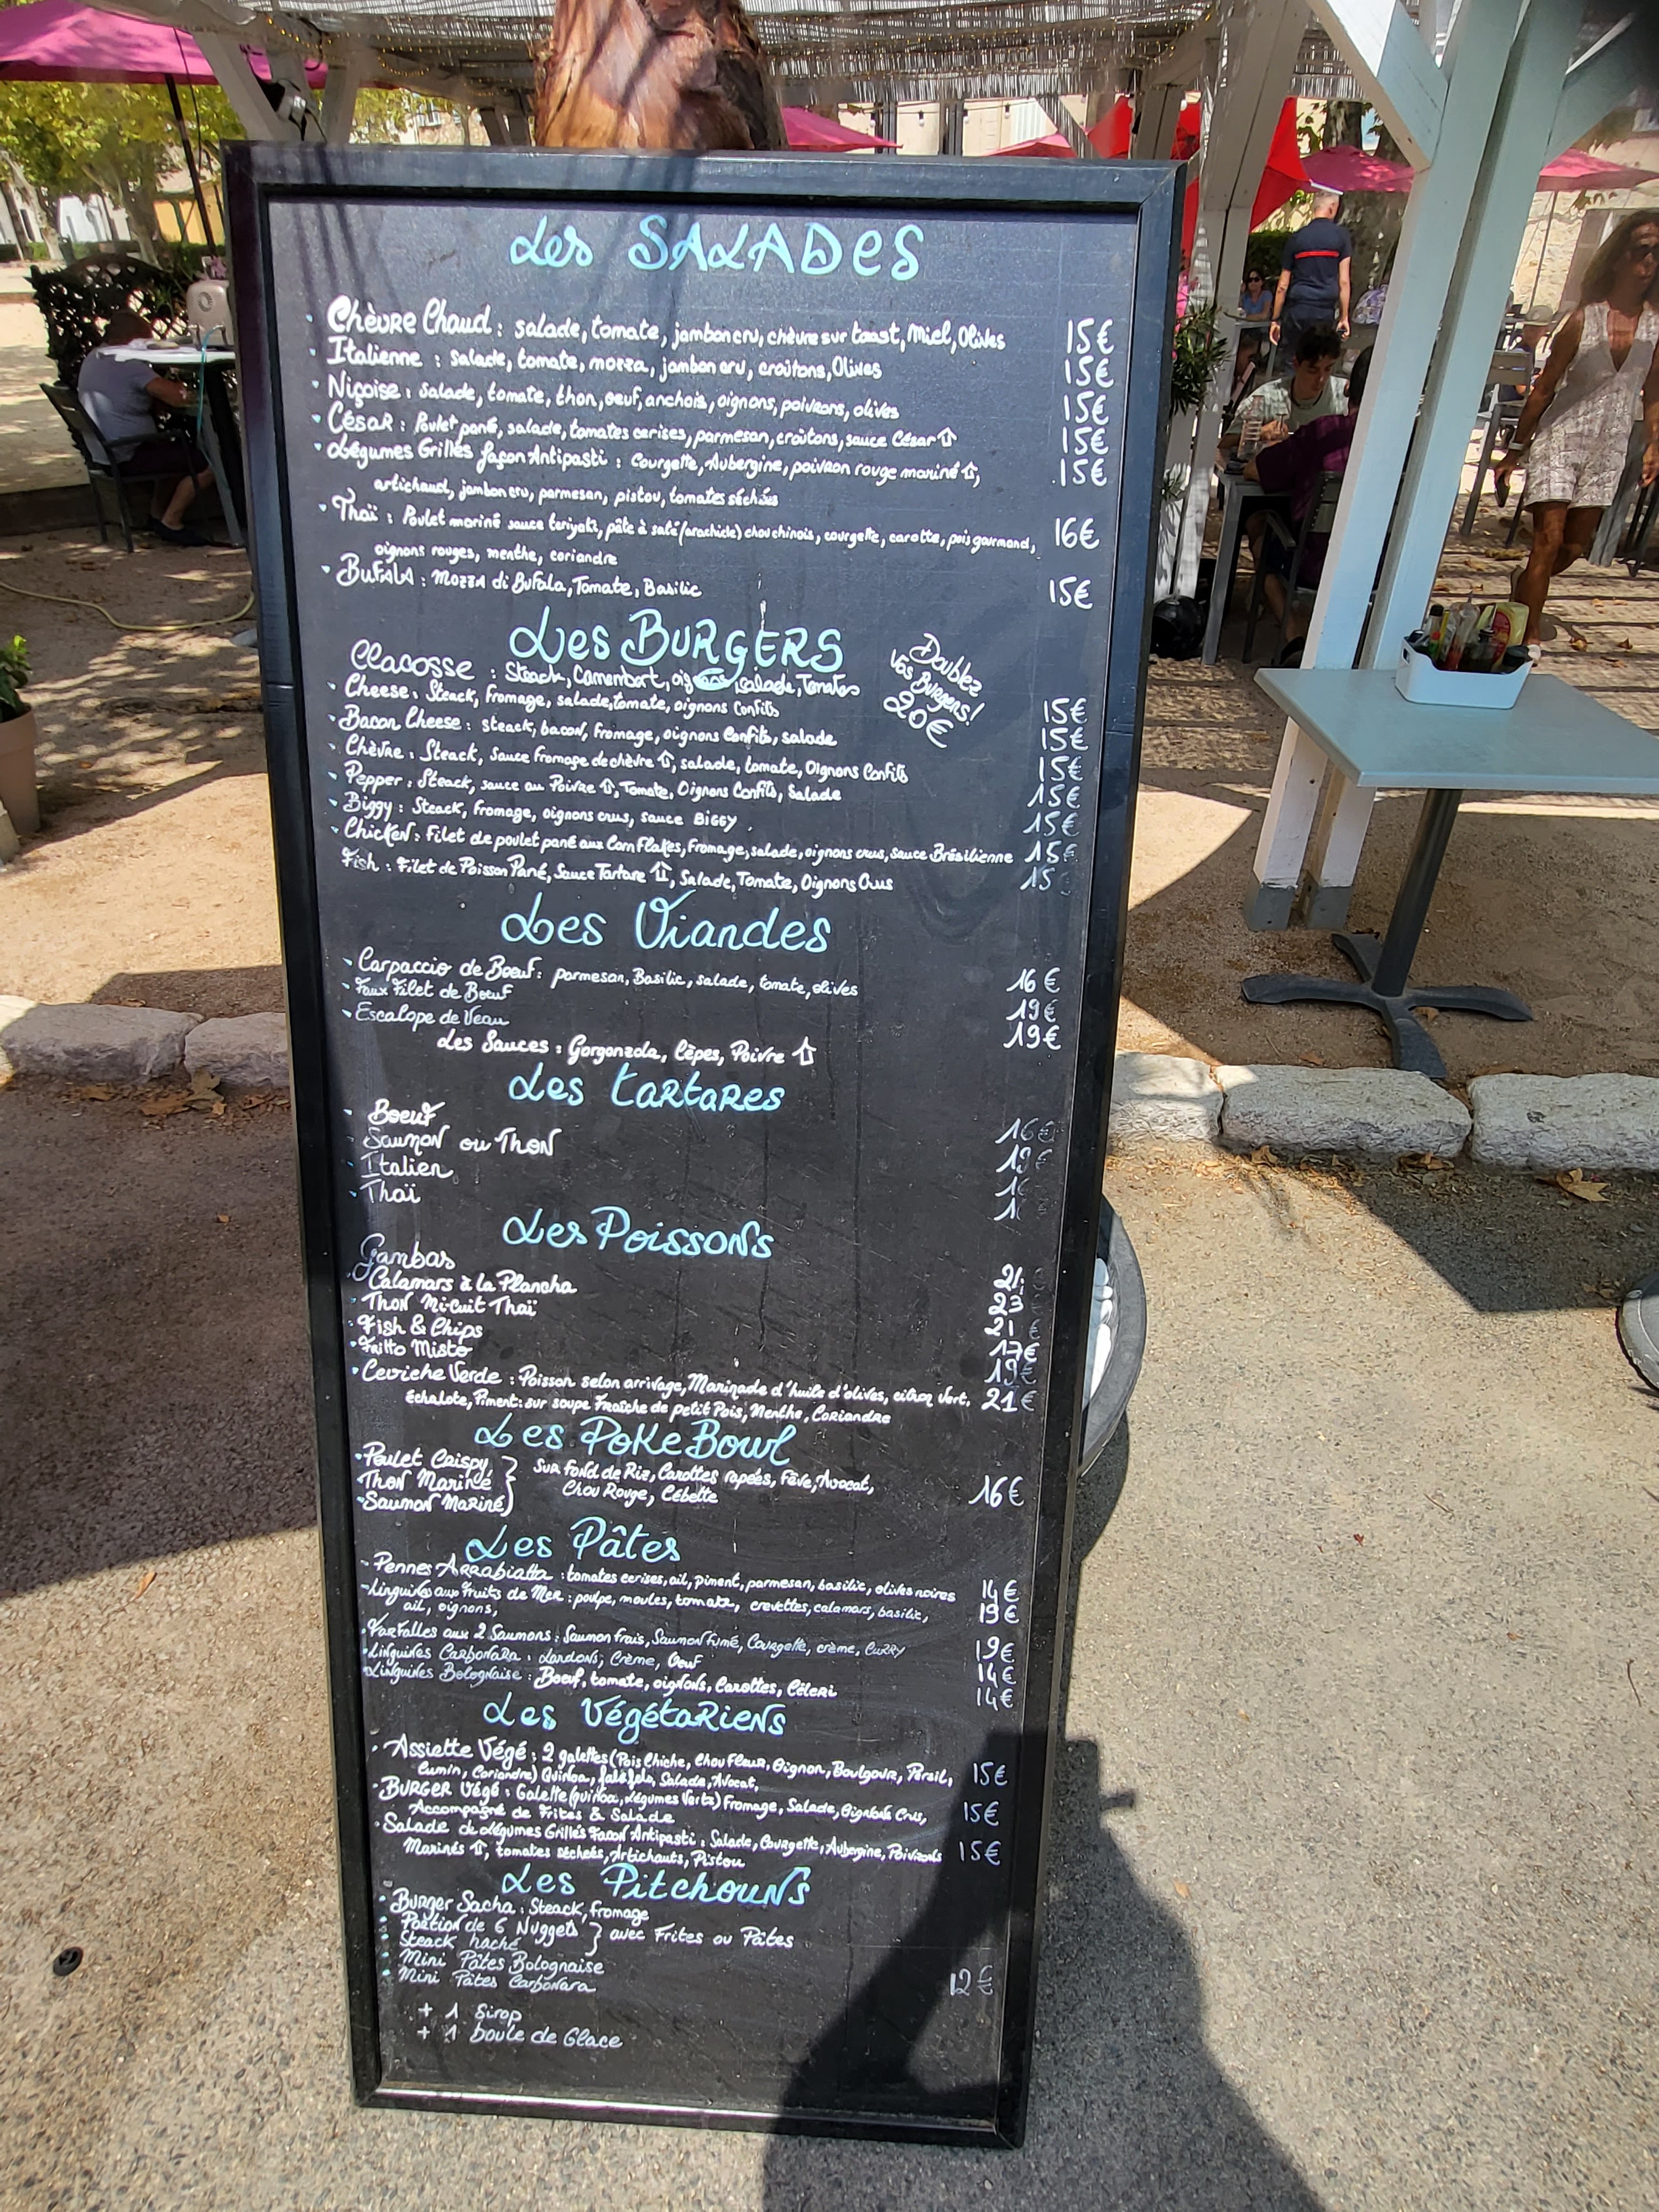 Les SALADES
Chèvre Chaud : salade, tomate, jambon cru, chèvre sur toast, Miel, Olives 15€
Italienne : salade, tomate, mozza, jambon cru, croûtons, Olives 15€
Niçoise : salade, tomate, thon, oeuf, anchois, oignons, poivrons, olives 15€
César : Poulet pané, salade, tomates cerises, parmesan, croûtons, sauce César 15€
Légumes Grillés façon Antipasti : Courgette, Aubergine, poivron rouge mariné, 15€
artichaud, jambon cru, parmesan, pistou, tomates séchées
Thaï : Poulet mariné sauce teriyaki, pâte à saté (arachide) chou chinois, courgette, carotte, pois gourmand, 16€
oignons rouges, menthe, coriandre
BUFALA : Mozza di Bufala, Tomate, Basilic 15€
Les BURGERS
Doublez
vos Burgers!
20€
Clacosse : Steack, Camembert, oignons, salade, Tomates
Cheese : Steack, fromage, salade, tomate, oignons Confits 15€
Bacon Cheese : steack, bacon, fromage, oignons Confits, salade 15€
Chèvre : Steack, Sauce fromage de chèvre, salade, tomate, Oignons Confits 15€
Pepper : Steack, sauce au Poivre, Tomate, Oignons Confits, Salade 15€
Biggy : Steack, fromage, oignons crus, sauce BIGGY 15€
Chicken : Filet de poulet pané aux Corn Flakes, fromage, salade, oignons crus, sauce Brésilienne 15€
Fish : Filet de Poisson Pané, Sauce Tartare, Salade, Tomate, Oignons Crus 15
Les Viandes
Carpaccio de Boeuf : parmesan, Basilic, salade, tomate, olives 16€
Faux Filet de Boeuf 19€
Escalope de Veau 19€
Les Sauces : Gorgonzola, Cèpes, Poivre
Les tartares
Boeuf 16€
Saumon ou Thon 19€
Italien 1
Thaï 1
Les Poissons
Gambas 21
Calamars à la Plancha 23
Thon Mi-Cuit Thaï 21 €
Fish & Chips 17€
Fritto Misto 19€
Ceviche Verde : Poisson selon arrivage, Marinade d'huile d'olives, citron vert, 21€
échalote, Piment : sur soupe Fraîche de petit Pois, Menthe, Coriandre
Les Poke Bowl
Poulet Crispy
Thon Mariné
Saumon Mariné
Sur fond de Riz, Carottes rapées, Fève, Avocat,
Chou Rouge, Cébette 16€
Les Pâtes
Pennes Arrabiatta : tomates cerises, ail, piment, parmesan, basilic, olives noires 14€
Linguines aux fruits de Mer : poulpe, moules, tomate, crevettes, calamars, basilic, 19€
ail, oignons,
Farfalles aux 2 Saumons : Saumon frais, Saumon fumé, Courgette, crème, Curry 19€
Linguines Carbonara : Lardons, Crème, Oeuf 14€
Linguines Bolognaise : Boeuf, tomate, oignons, Carottes, Céleri 14€
Les Végétariens
Assiette Végé : 2 galettes (Pois Chiche, Chou Fleur, Oignon, Boulgour, Persil, 15€
Cumin, Coriandre) Quinoa, falafels, Salade, Avocat,
BURGER Végé : Galette (quinoa, Légumes Verts) Fromage, Salade, Oignons Crus, 15€
Accompagné de Frites & Salade
Salade de Légumes Grillés Façon Antipasti : Salade, Courgette, Aubergine, Poivrons 15€
Marinés, tomates séchées, Artichauts, Pistou
Les Pitchouns
Burger Sacha : Steack, fromage
Portion de 6 Nuggets
Steack haché
avec Frites ou Pâtes
Mini Pâtes Bolognaise
Mini Pâtes Carbonara 12€
+ 1 Sirop
+ 1 boule de Glace